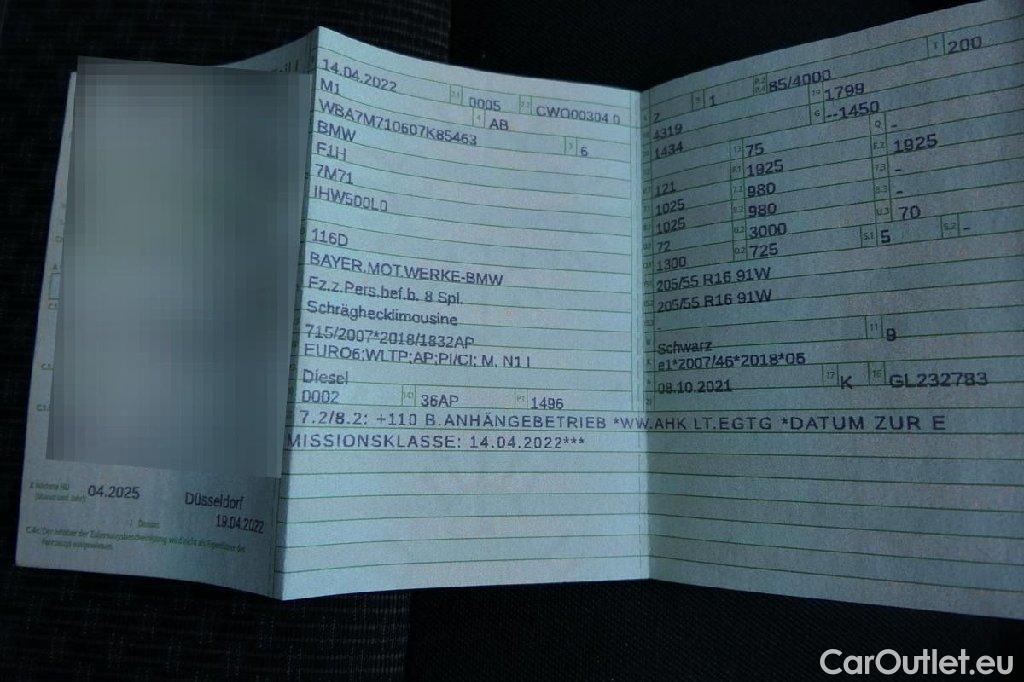 04.2025
Düsseldorf
19.04.2022
14.04.2022 0005 CWO00304 0
M1 AB
WBA7M710607K85463 6
BMW
F1H
7M71
IHW500L0
116D
BAYER.MOT.WERKE-BMW
Fz.z.Pers.bef.b. 8 Spl.
Schräghecklimousine
715/2007*2018/1832AP
EURO6;WLTP;AP;PI/CI; M, N1 I
Diesel
0002 36AP 1496
7.2/8.2: +110 B.ANHÄNGEBETRIEB *WW.AHK LT.EGTG *DATUM ZUR E
MISSIONSKLASSE: 14.04.2022***
2 1 85/4000 200
4319 1799
1434 --1450
75 -
121 1925 1925
1025 980 -
1025 980 -
72 3000 70
1300 725 5 -
205/55 R16 91W
205/55 R16 91W
-
Schwarz 9
e1*2007/46*2018*06
08.10.2021 K GL232783
CarOutlet.eu